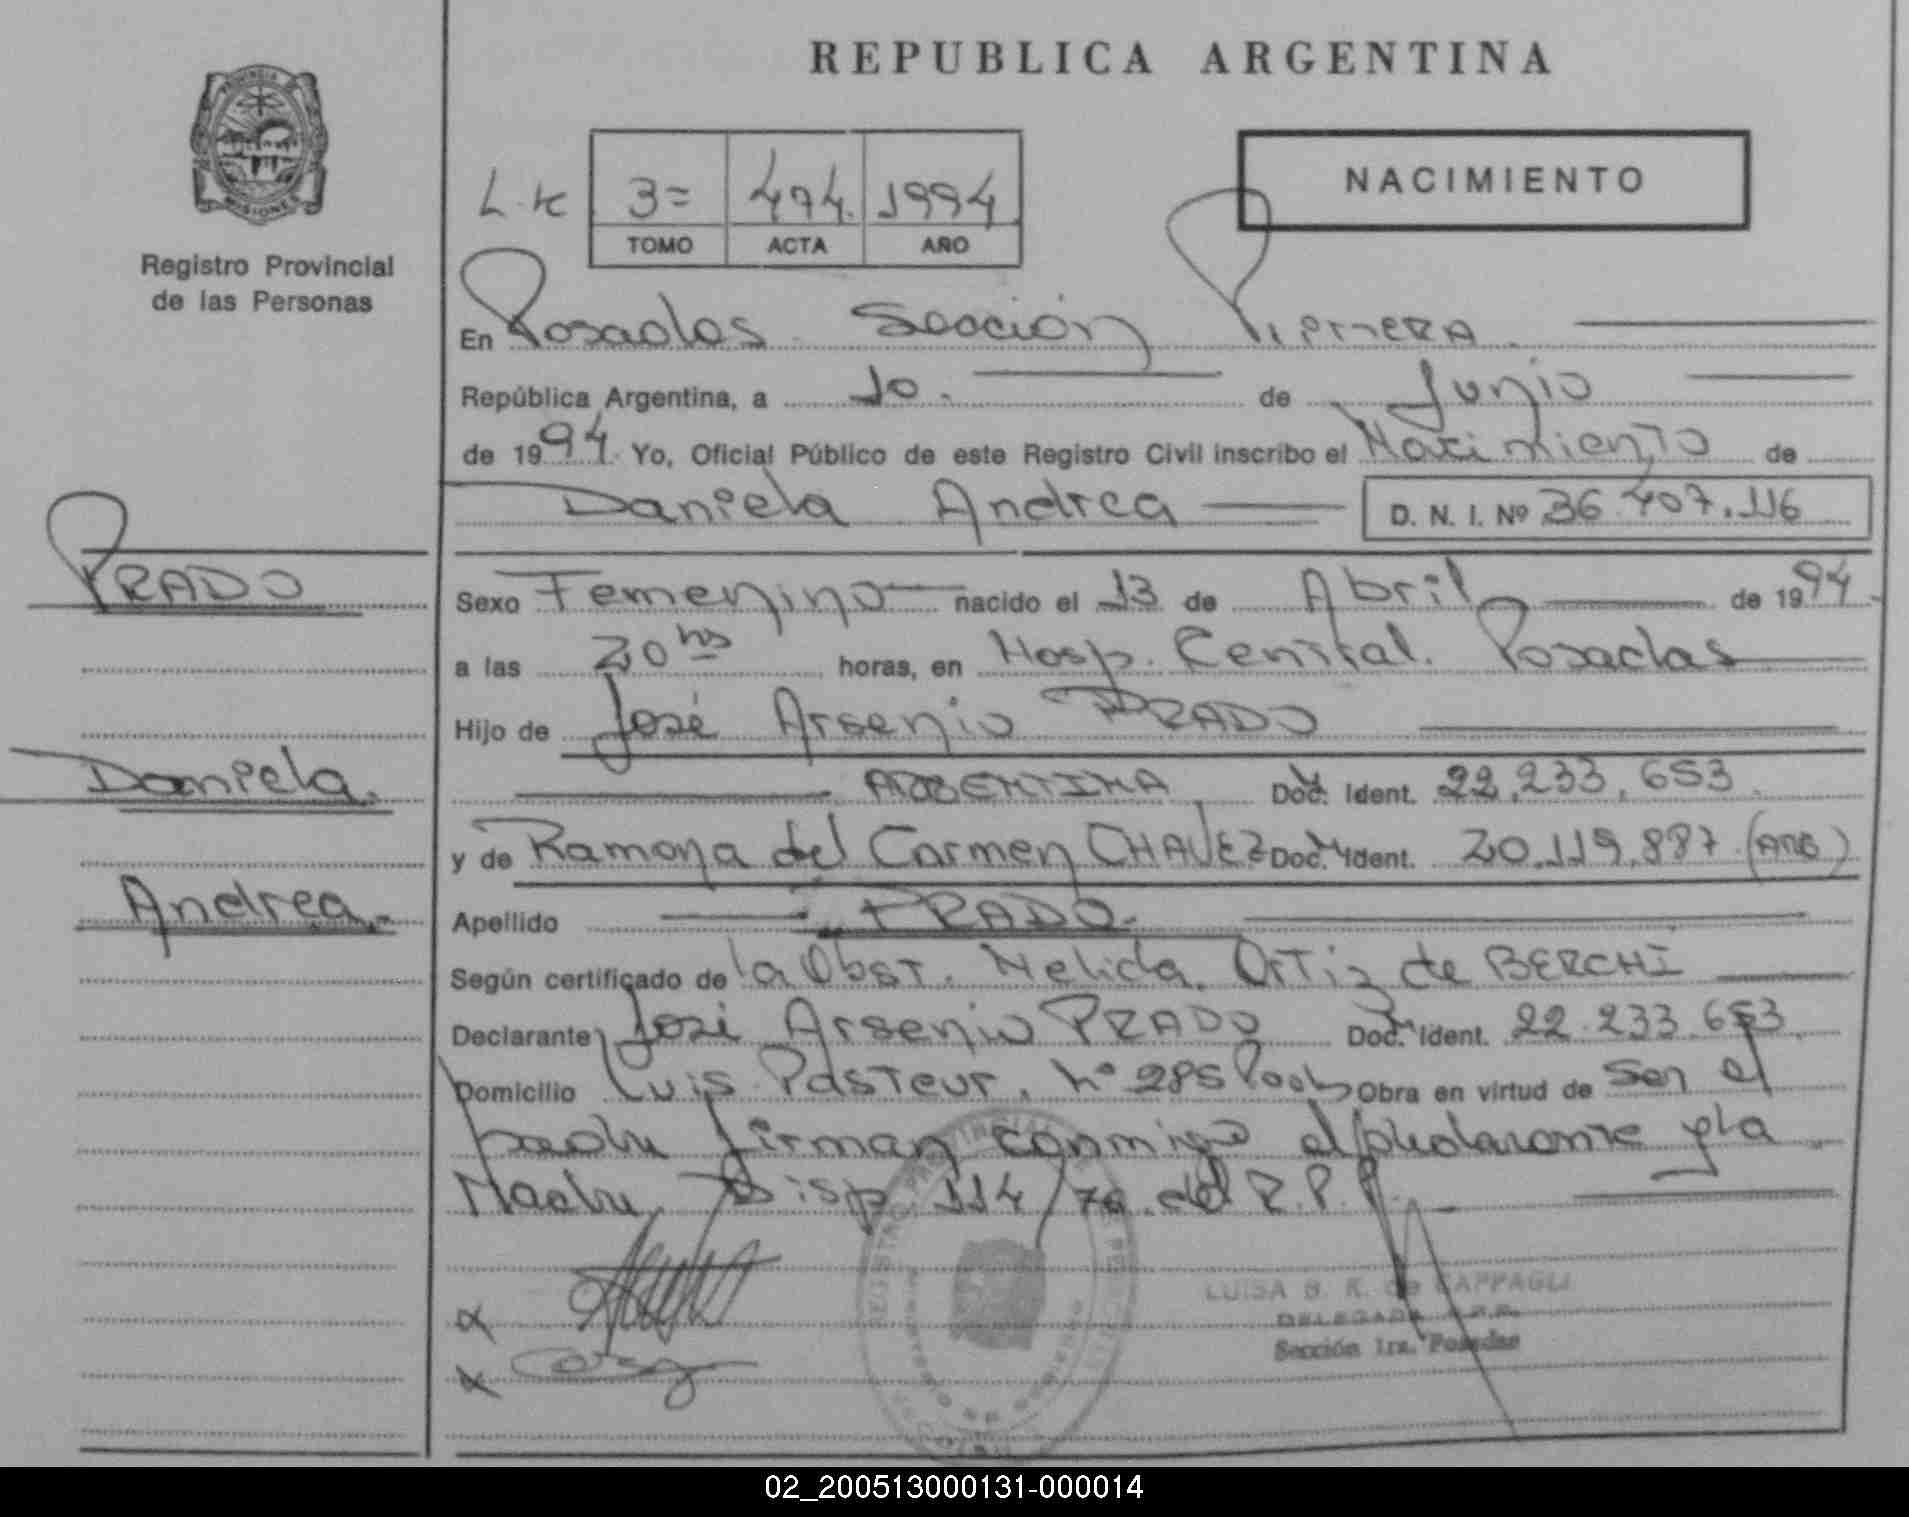 REPUBLICA ARGENTINA
PROVINCIA
MISIONES
Registro Provincial
de las Personas
NACIMIENTO
3= 474. 1994
TOMO ACTA AÑO
En Posadas Sección Primera.
República Argentina, a 10. de Junio
de 1994. Yo, Oficial Público de este Registro Civil inscribo el Nacimiento de
Daniela Andrea D. N. I. Nº 36.407.116
PRADO
Sexo Femenino nacido el 13 de Abril de 1994.
a las 20 hs horas, en Hosp. Central. Posadas
Hijo de José Arsenio PRADO
Daniela.
ARGENTINA Doc. Ident. 22.233.653
y de Ramona del Carmen CHAVEZ Doc. Ident. 20.119.887 (ARG)
Andrea.
Apellido PRADO.
Según certificado de la Obst. Nelida Ortiz de BERCHI
Declarante José Arsenio PRADO Doc. Ident. 22.233.653
Domicilio Luis Pasteur. nº 285 Obra en virtud de Ser el
padre firman conmigo el declarante y la
Madre Disp 114/ del R.P.P.
LUISA B. K. de CAPPAGLI
DELEGADA R.P.P.
Sección 1ra. Posadas
02_200513000131-000014